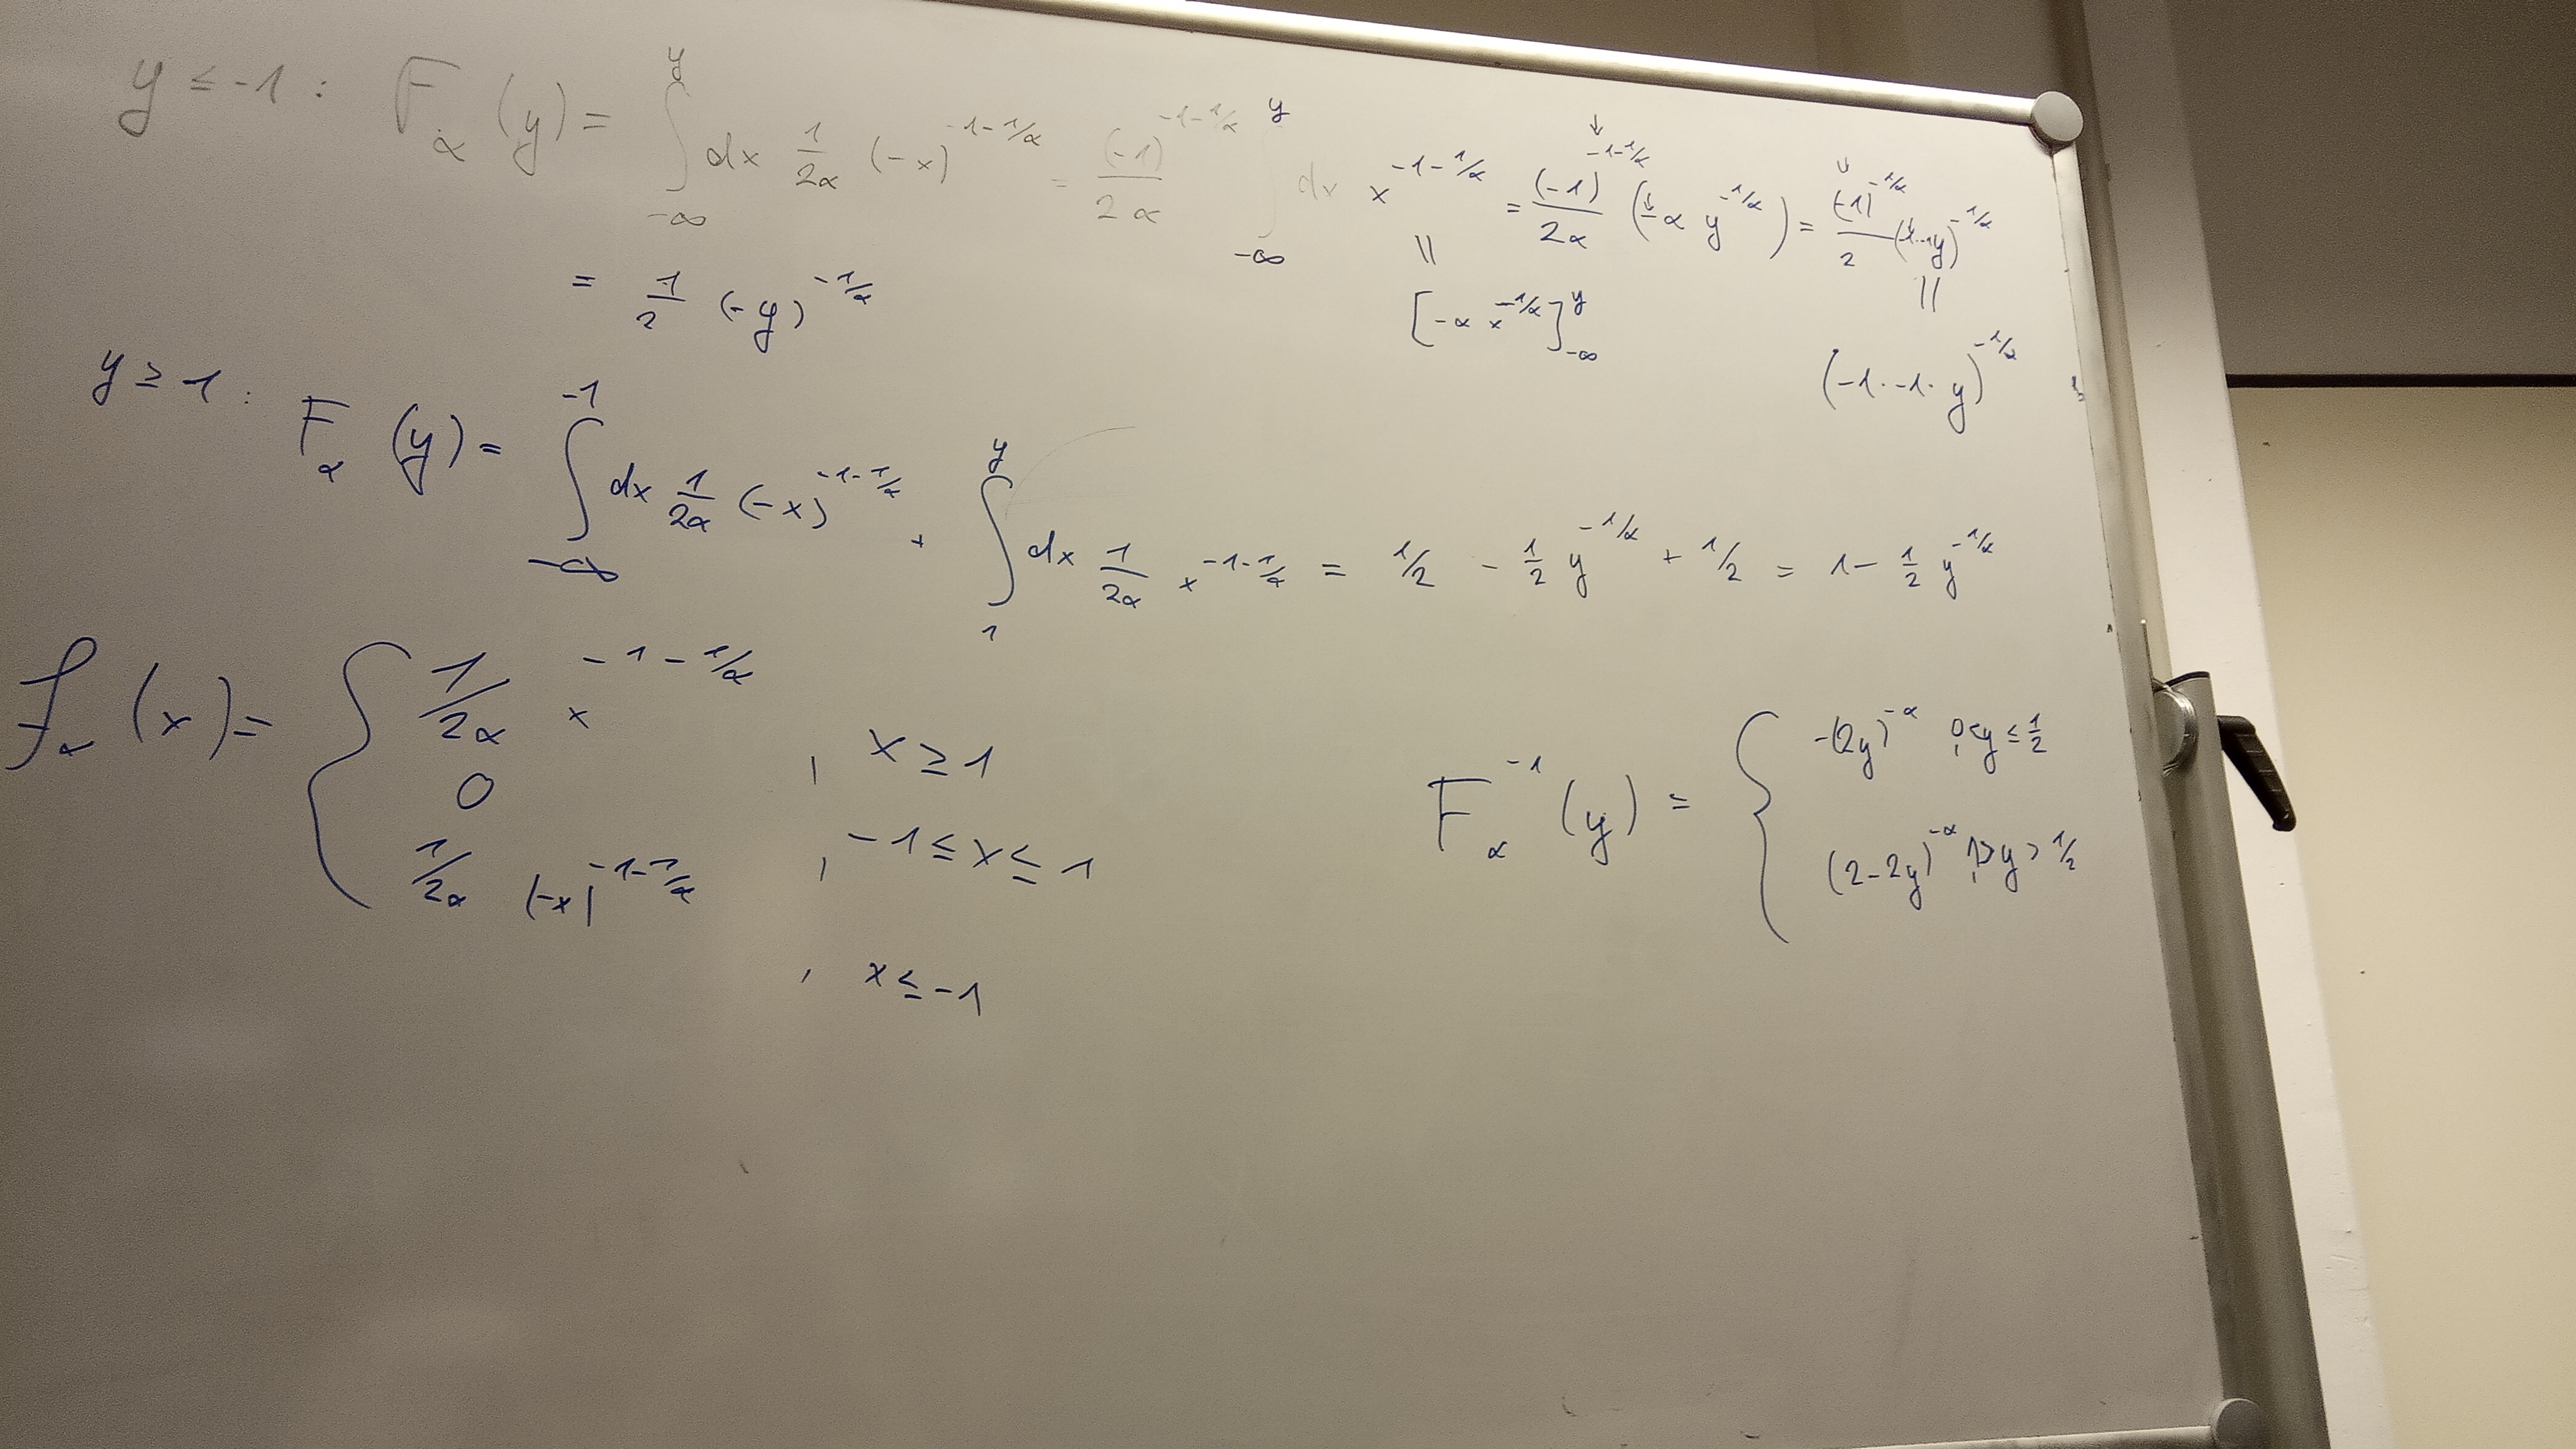 y ≤ -1 : F_α (y) = ∫_{-∞}^{y} dx 1/2α (-x)^{-1-1/α} = (-1)^{-1-1/α}/2α ∫_{-∞}^{y} dx x^{-1-1/α} = (-1)^{-1-1/α}/2α (-α y^{-1/α}) = (-1)^{-1/α}/2 (-1·y)^{-1/α}
= 1/2 (-y)^{-1/α}
|| [-α x^{-1/α}]_{-∞}^{y}
|| (-1·-1·y)^{-1/α}
y ≥ 1 : F_α (y) = ∫_{-∞}^{-1} dx 1/2α (-x)^{-1-1/α} + ∫_{1}^{y} dx 1/2α x^{-1-1/α} = 1/2 - 1/2 y^{-1/α} + 1/2 = 1 - 1/2 y^{-1/α}
f_α (x) = { 1/2α x^{-1-1/α} , x ≥ 1
0 , -1 ≤ x ≤ 1
1/2α (-x)^{-1-1/α} , x ≤ -1
F_α^{-1} (y) = { -(2y)^{-α} , 0<y ≤ 1/2
(2-2y)^{-α} , 1>y > 1/2